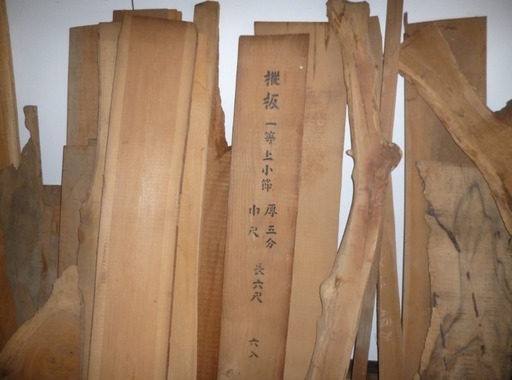 樅板 一等上小節 厚五分
巾尺
長六尺
六入